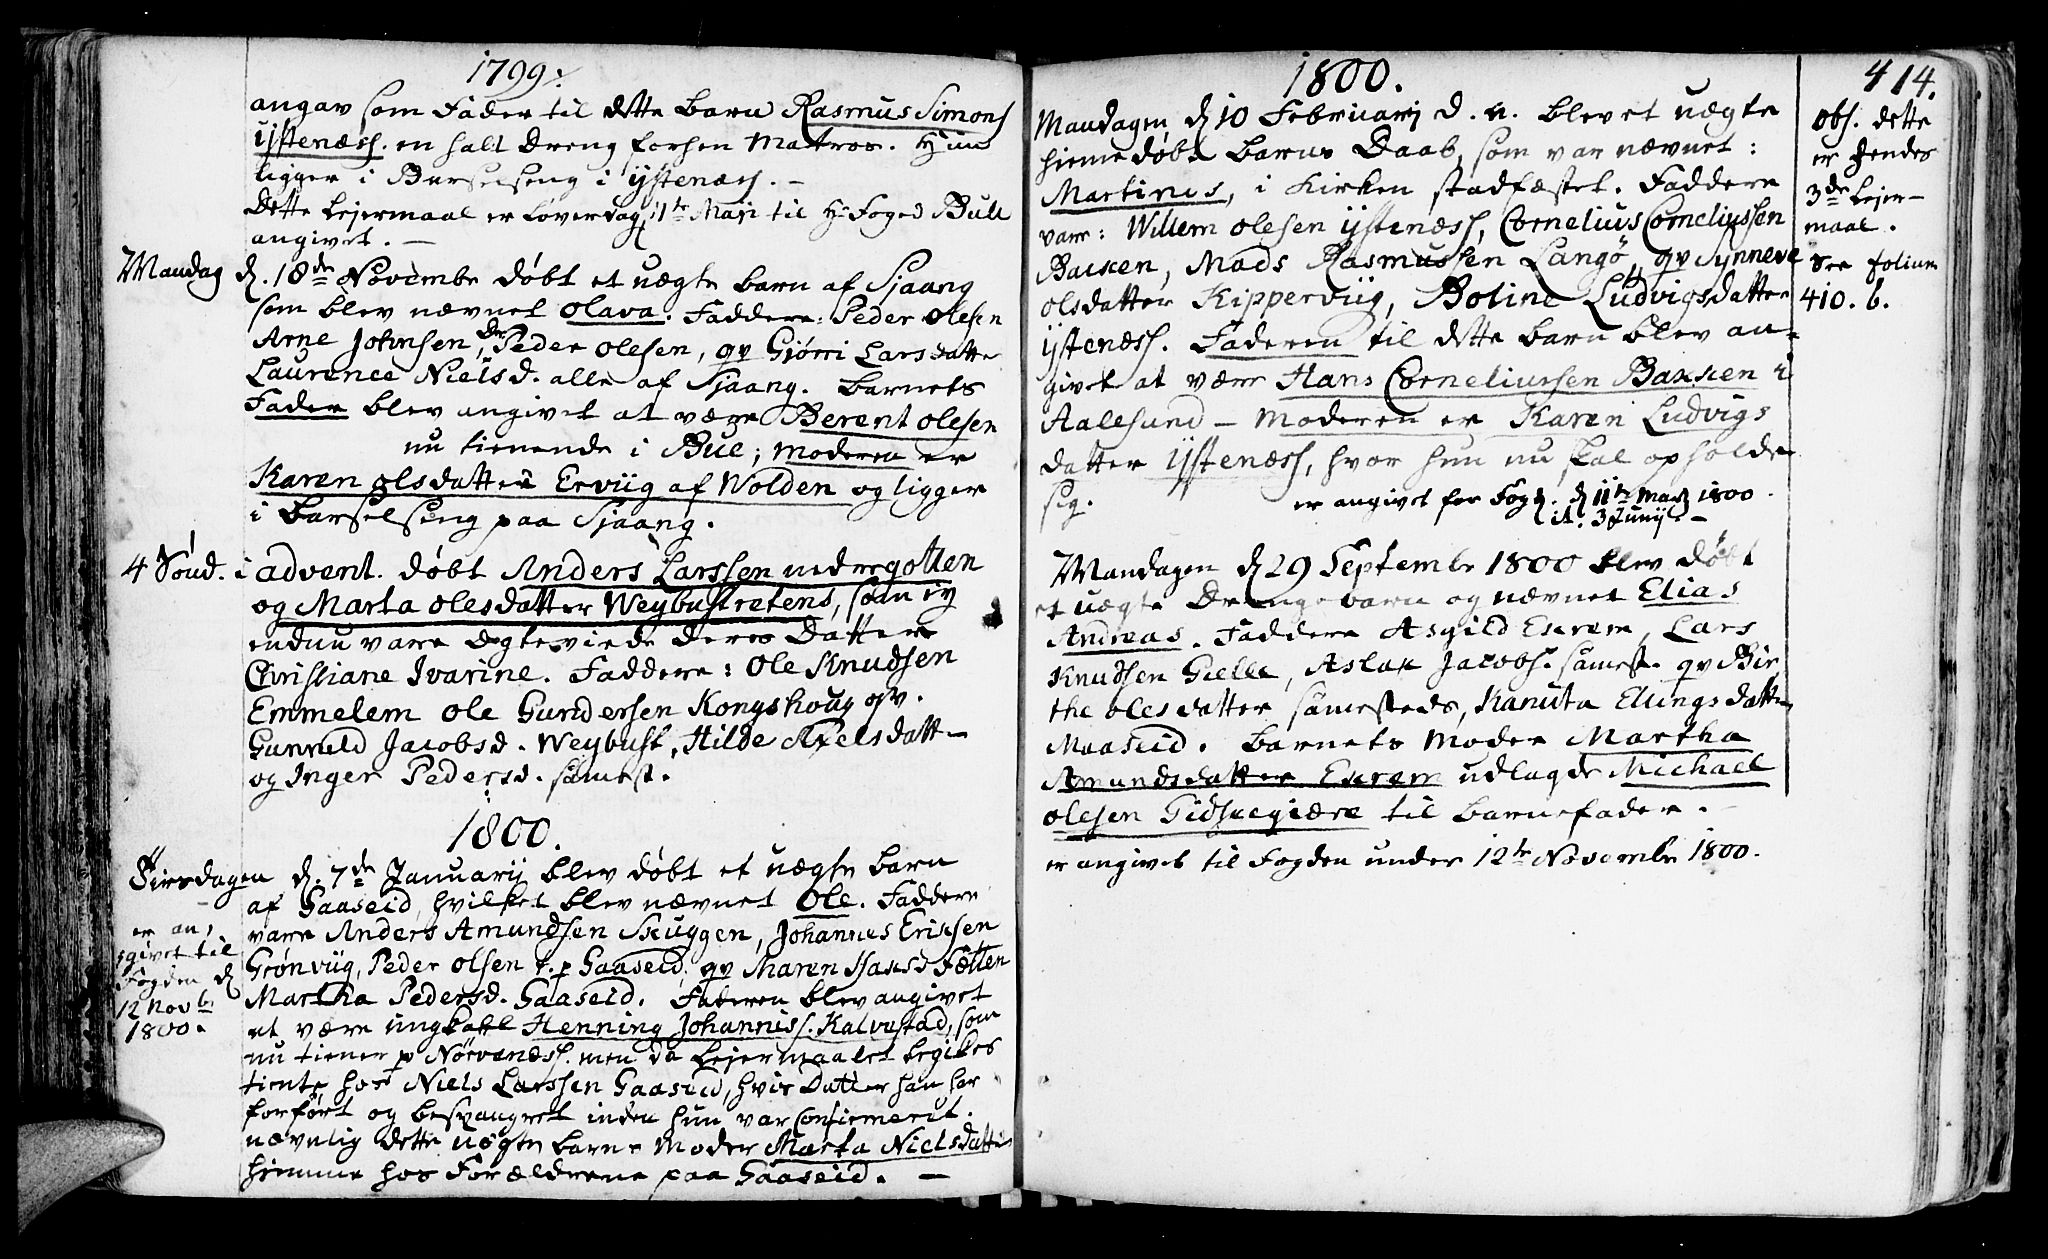 1799.
angav som Fader til dette Barn Rasmus Simons
Ystenæss. en halt Dreng forhen Matros. Hun
ligger i Barselseng i Ystenæss. -
Dette Lejermaal er Løverdag 11te Maji til Hr Foged Bull
angivet. -
Mandag d. 18de Novembr døbt et uægte barn af Sjaang
som blev nævnet Olava. Faddere: Peder Olesen
Arne Johnsen, Peder Olesen, qv Gjørri Larsdatte
Laurence Nielsd. alle af Sjaang. Barnets
Fader blev angivet at være Berent Olesen
nu tienende i Bue; Moderen er
Karen Olsdatter Erviig af Wolden og ligger
i Barselseng paa Sjaang.
4 Sønd. i advent. døbt Anders Larssen nedregotten
og Marta Olesdatter Weybustretens, som ey
endnu vare Ægteviede deres Datter
Christiane Ivarine. Faddere: Ole Knudsen
Emmelem Ole Gundersen Kongshoug qv.
Gunnild Jacobsd. Weybust, Hilde Axelsdatt-
og Inger Pedersd. samest.
1800.
Tirsdagen d. 7de Januarij blev døbt et uægte barn
af Gaaseid, hvilket blev nævnet Ole. Faddere
vare Anders Amundsen Skuggen, Johannes Eriksen
Grønviig, Peder Olsen p Gaaseid. qv Maren Hansd Fætten
Martha Pedersd. Gaaseid. Faderen blev angivet
at være ungkarl Henning Johanniss. Kalvestad, som
nu tiener p Nørvenæss. men da Lejermaalet begikes
tiente hos Niels Larssen Gaaseid, hvis Datter han har
forført og besvangret inden hun var Confirmeret.
nævnlig dette uægte barns Moder Marta Nielsdatte
hiemme hos Forældrene paa Gaaseid. -
er an-
givet til
Fogden d
12 Novbr
1800.
1800.
414.
Mandagen d 10 Februarij d. a. blevet uægte
hiemedøbt barns Daab, som var nævnet:
Martinus, i Kirken stadfæstet. Faddere
vare: Willem Olesen Ystenæss, Cornelius Corneliussen
Bakken, Mads Rasmussen Langø, qv Synneve
Olsdatter Kipperviig, Boline Ludvigsdatter
Ystenæss. Faderen til dette barn blev an-
givet at være Hans Corneliussen Bakken i
Aalesund - Moderen er Karen Ludvigs
datter Ystenæss, hvor hun nu skal opholde
sig.
er angivet for Fogd. d 11te Martz 1800.
it. 3 Junij -
Obs. dette
er hendes
3de Lejer-
maal.
See folium
410. b.
Mandagen d 29 Septembr 1800 blev døbt
et uægte Drengebarn og nævnet Elias
Andreas. Faddere Asgild Ekrem, Lars
Knudsen Gielle, Aslak Jacobs. samest. qv Bir
the Olesdatter samesteds, Kanuta Ellingsdatte
Maaseid. Barnets Moder Martha
Amundsdatter Ekrem udlagde Michael
Olesen Gidskegiære til Barnefader. -
er angivet til Fogden under 12te Novembr 1800.